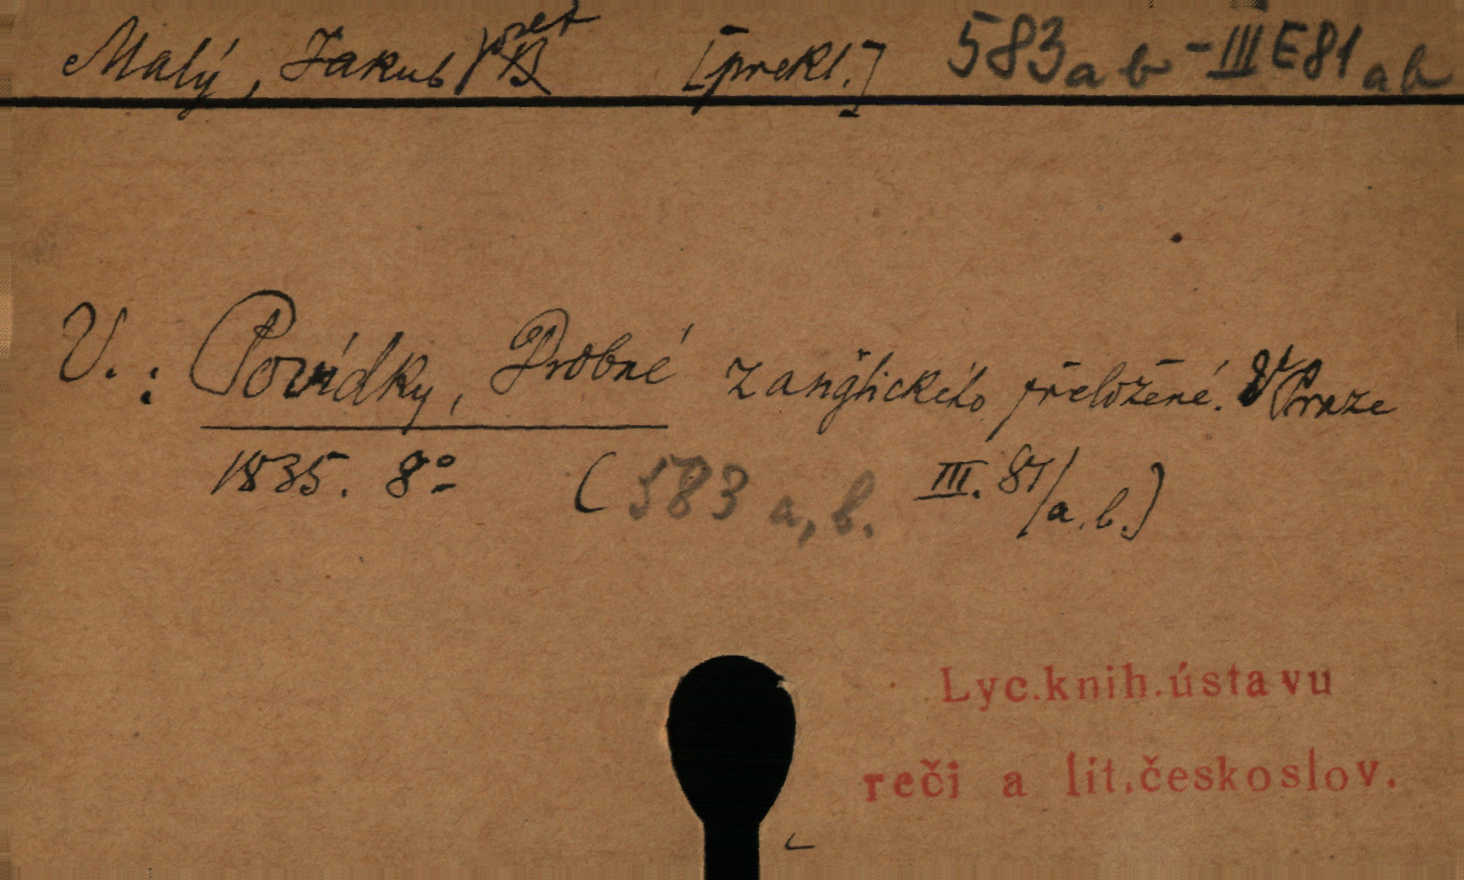 Malý, Jakub [prekl.] 583 a b - III E 81 a b
V.: Povídky, Drobné z anglického přeložené. V Praze
1835. 8° (583 a, b. III. 81/a.b.)
Lyc.knih.ústavu
reči a lit.českoslov.